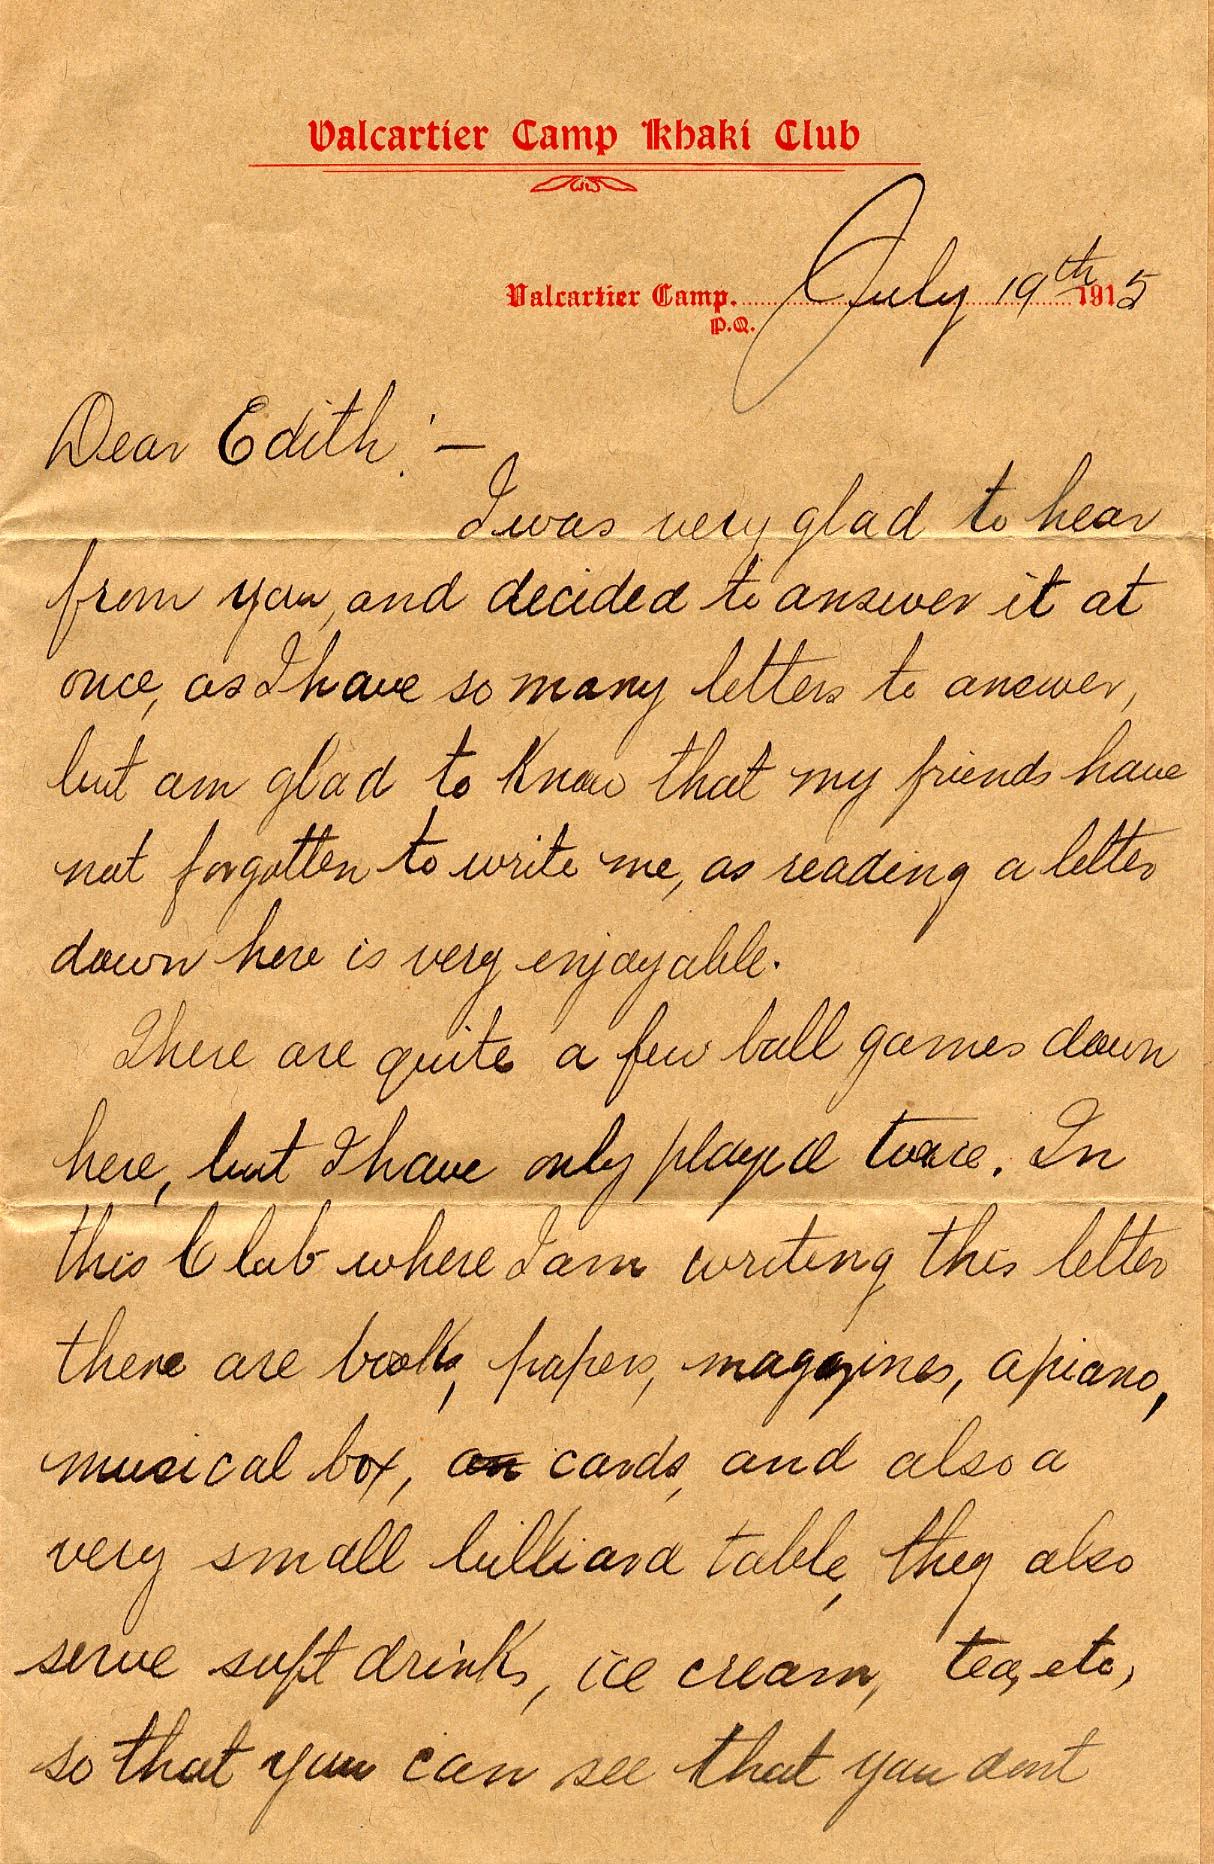 Valcartier Camp Khaki Club
Valcartier Camp. July 19th 1915
P.Q.
Dear Edith:—
I was very glad to hear
from you, and decided to answer it at
once, as I have so many letters to answer,
but am glad to know that my friends have
not forgotten to write me, as reading a letter
down here is very enjoyable.
There are quite a few ball games down
here, but I have only played twice. In
this Club where I am writing this letter
there are books, papers, magazines, a piano,
musical box, an cards, and also a
very small billiard table, they also
serve soft drinks, ice cream, tea, etc,
so that you can see that you dont